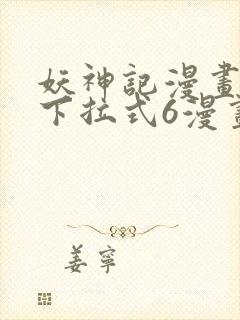 妖神記漫畫
下拉式6漫畫
姜寧